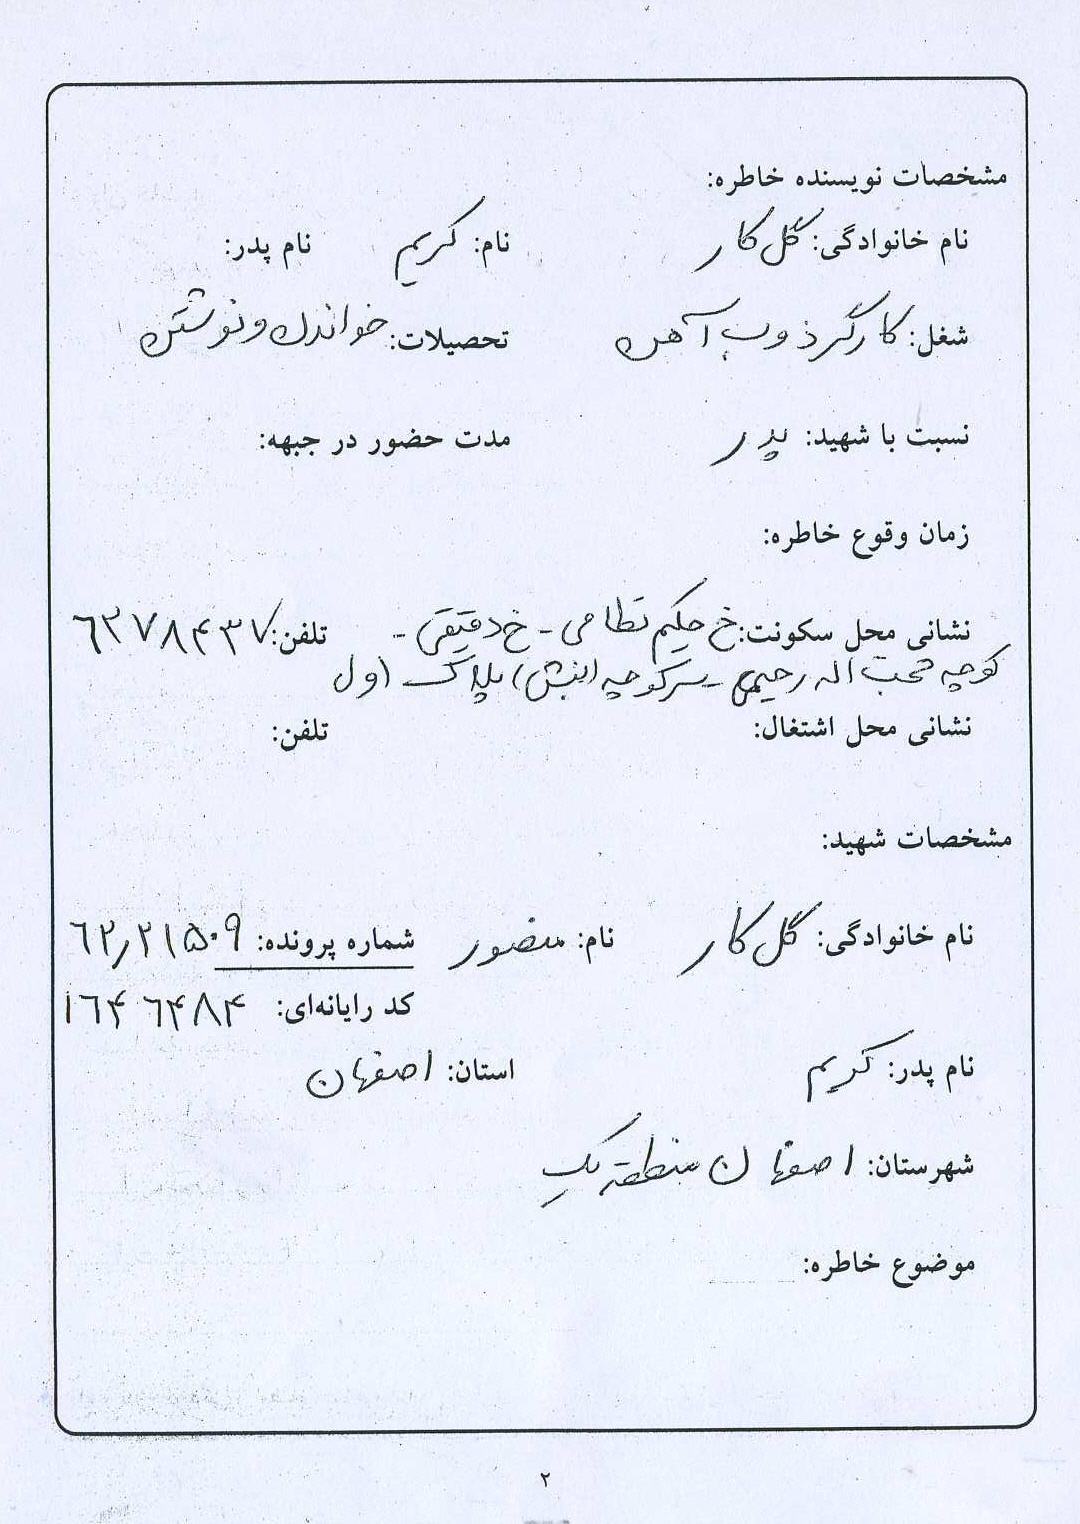 مشخصات نویسنده خاطره:
نام خانوادگی: گل کار نام: کریم نام پدر:
شغل: کارگر ذوب آهن تحصیلات: خواندن و نوشتن
نسبت با شهید: پدر مدت حضور در جبهه:
زمان وقوع خاطره:
نشانی محل سکونت: خ حکیم نظامی - خ دقیقی - تلفن: ۶۲۷۸۴۳۷
کوچه محب اله رحیمی - سرکوچه (نبش) پلاک اول
نشانی محل اشتغال: تلفن:
مشخصات شهید:
نام خانوادگی: گل کار نام: منصور شماره پرونده: ۶۲٫۲۱۵۰۹
کد رایانه‌ای: ۱۶۴۶۴۸۴
نام پدر: کریم استان: اصفهان
شهرستان: اصفهان منطقه یک
موضوع خاطره:
۲